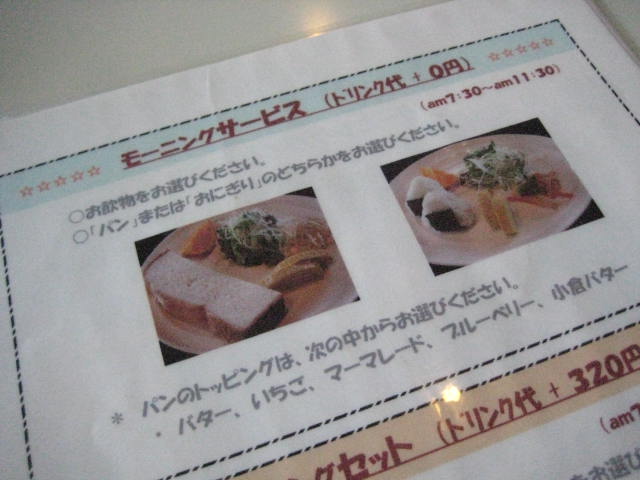 ☆☆☆☆☆ モーニングサービス (ドリンク代 + 0円) ☆☆☆☆☆
(am7:30~am11:30)
○お飲物をお選びください。
○「パン」または「おにぎり」のどちらかをお選びください。
* パンのトッピングは、次の中からお選びください。
・バター、いちご、マーマレード、ブルーベリー、小倉バター
グセット (ドリンク代 + 320円
(am7